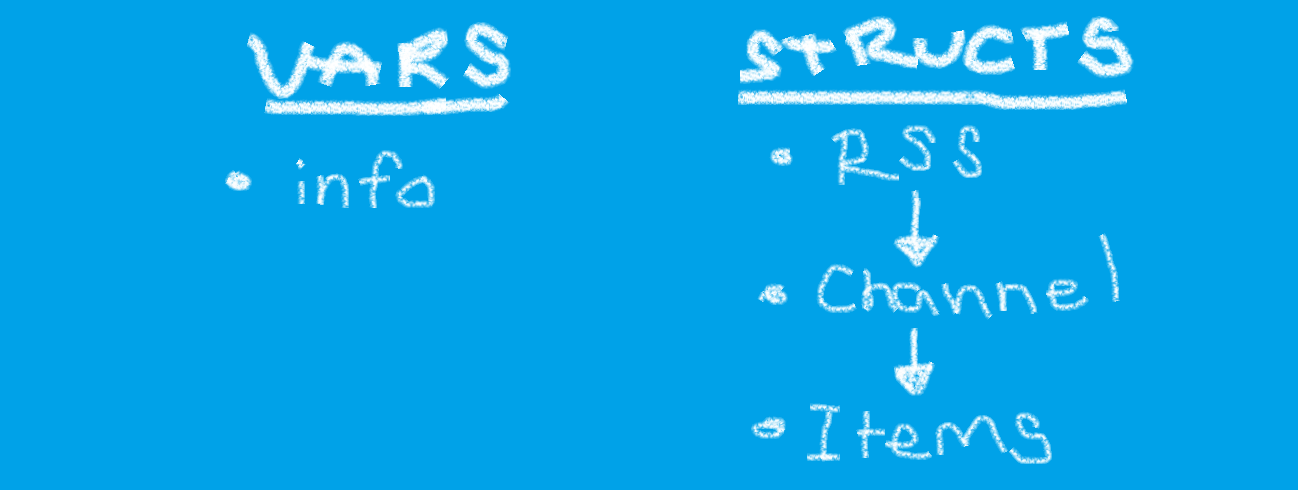 VARS
• info
STRUCTS
• RSS
• Channel
• Items